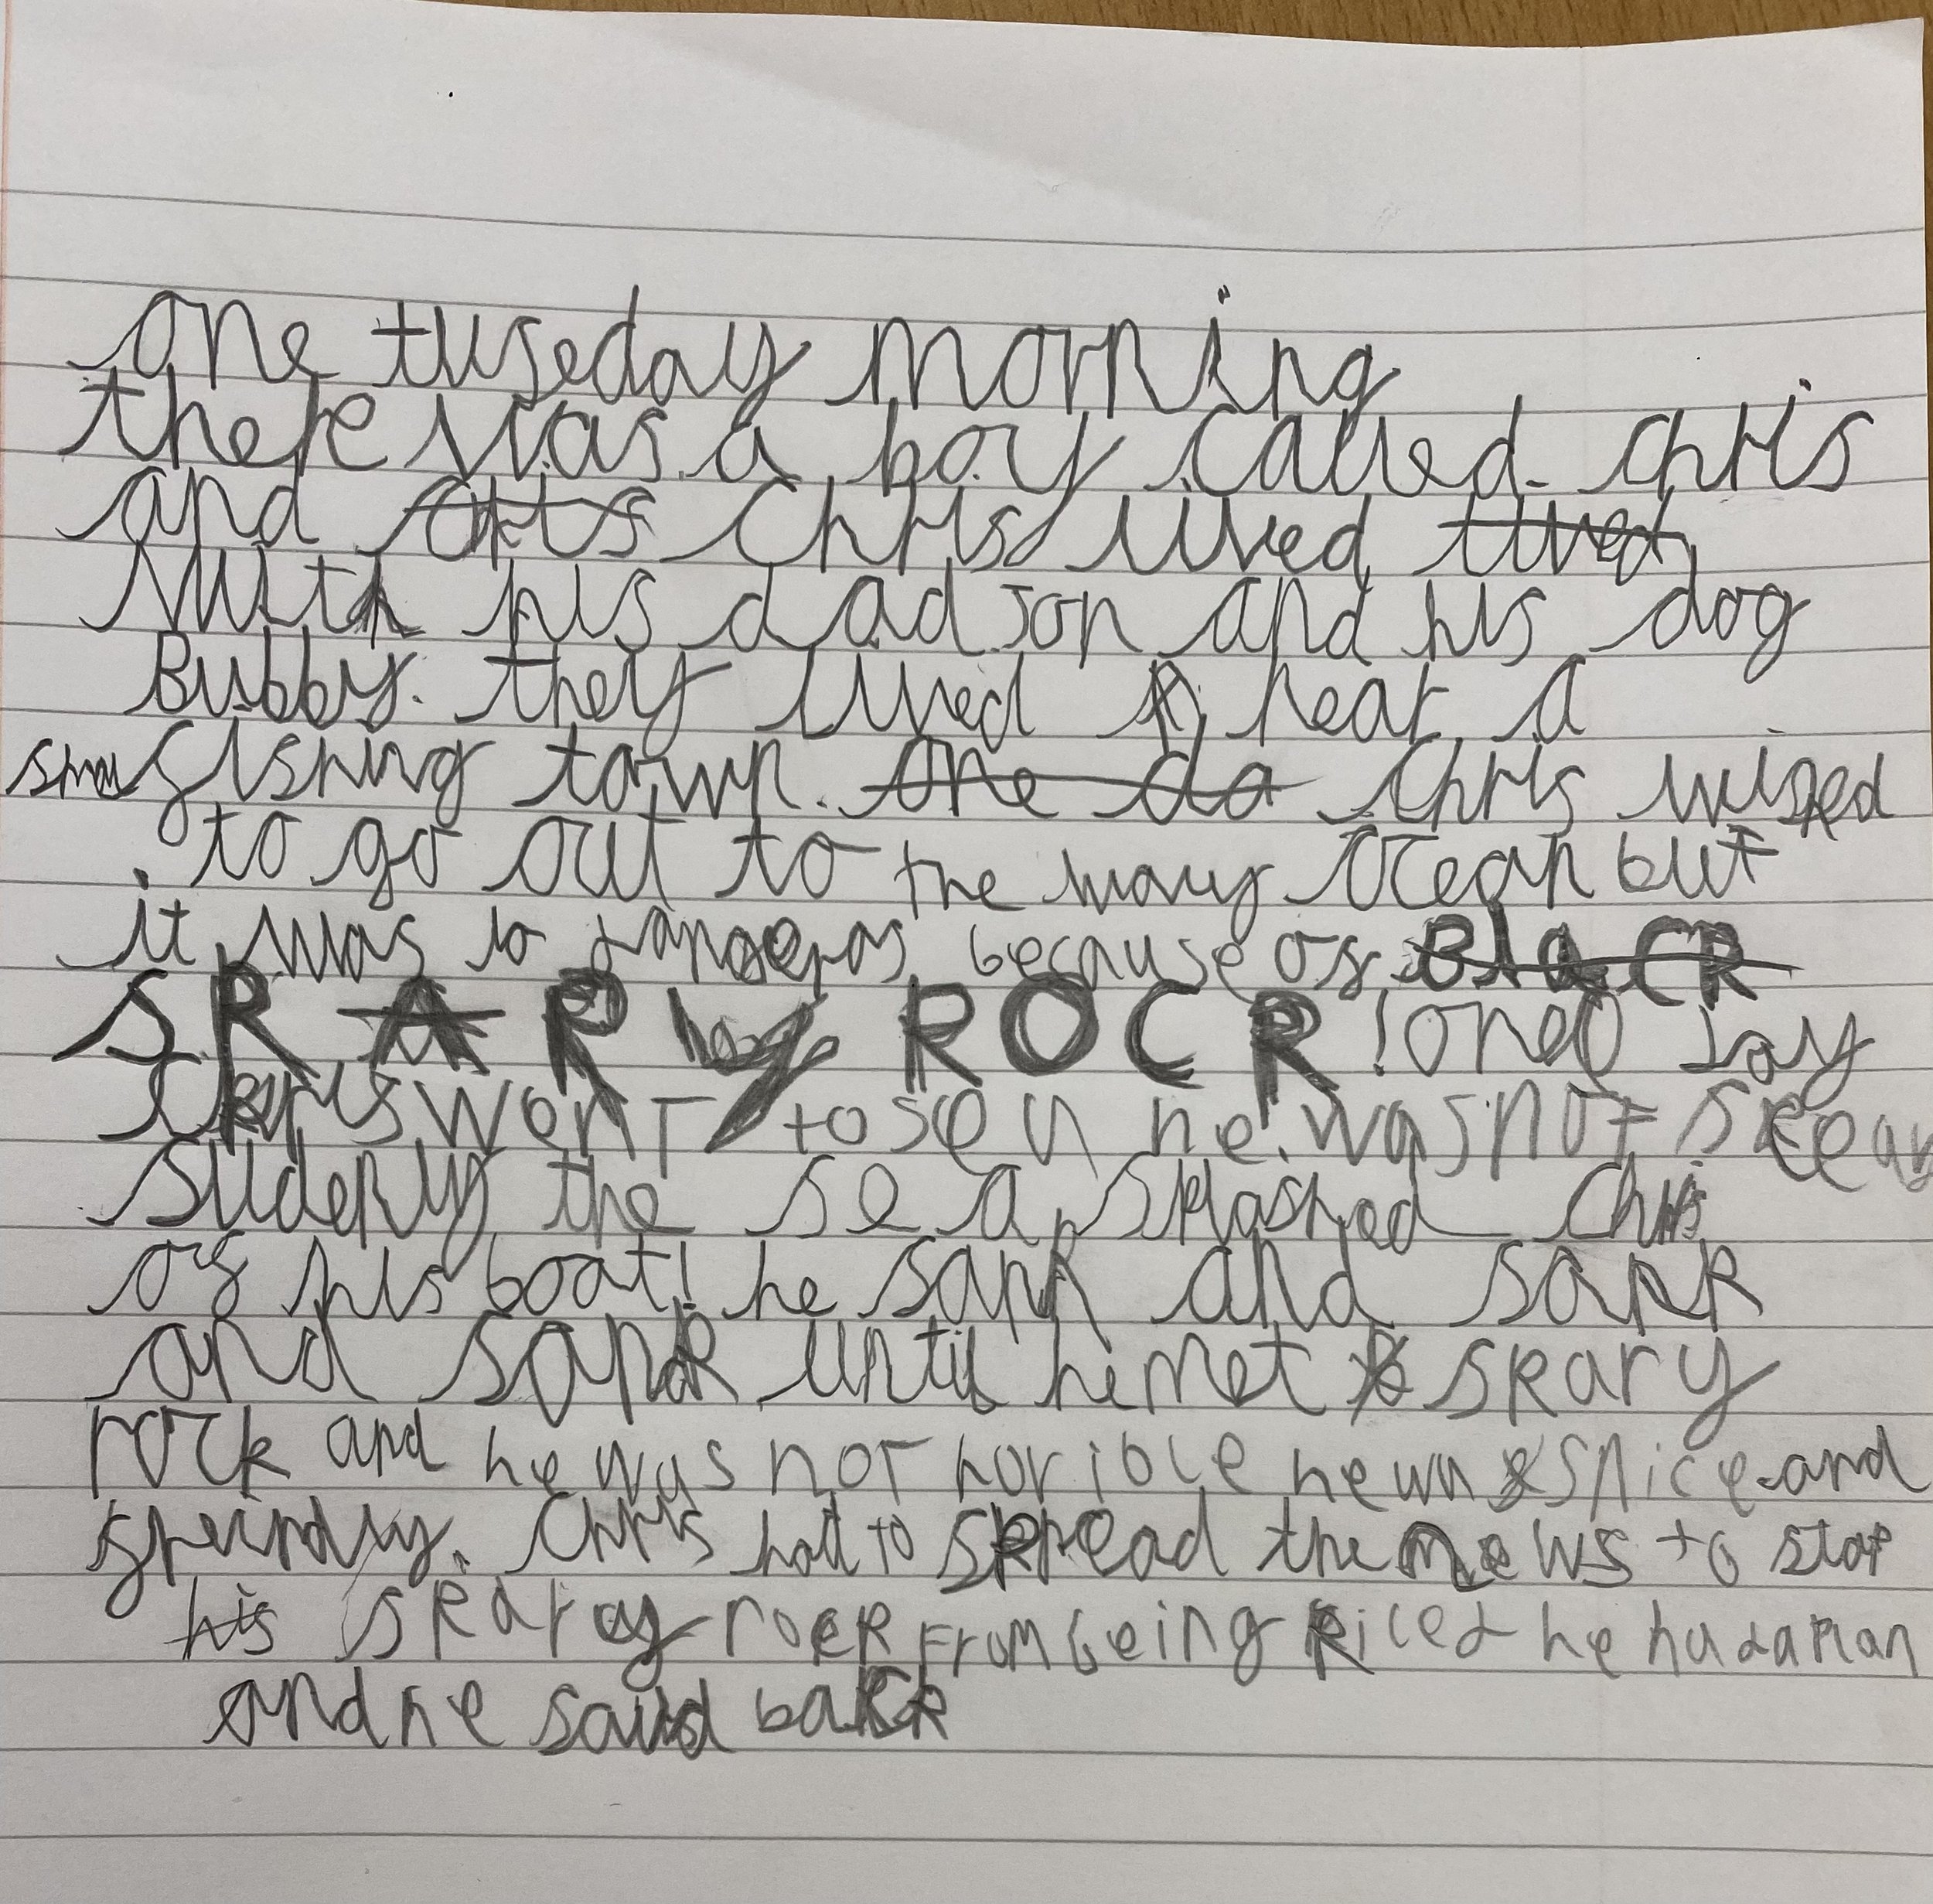 one tuseday morning
there was a boy called chris
and chris lived
with his dad Jon and his dog
Bubby. they lived near a
smal fishing town. chris wised
to go out to the wavy ocean but
it was to dangeras because of
SKARy ROCK! one day
chris went to sea he was not skeard
sudenly the sea splashed chris
of his boat! he sank and sank
and sank until he met skary
rock and he was not horible he was nice and
freindly. Chris had to spread the news to stop
skary rock From being kiled he had a plan
and he said back